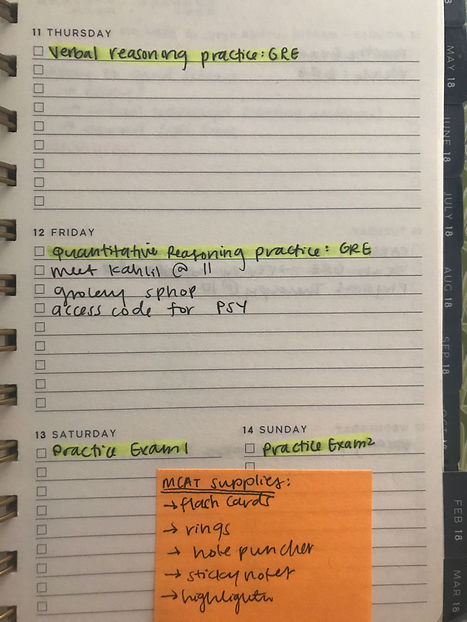 11 THURSDAY
Verbal reasoning practice: GRE
12 FRIDAY
Quantitative Reasoning practice: GRE
meet Kahlil @ 11
grolery sphop
access code for PSY
13 SATURDAY
Practice Exam 1
14 SUNDAY
Practice Exam 2
MCAT supplies:
→ flash cards
→ rings
→ hole puncher
→ sticky notes
→ highlighter
MAY 18
JUNE 18
JULY 18
AUG 18
SEP 18
FEB 18
MAR 18